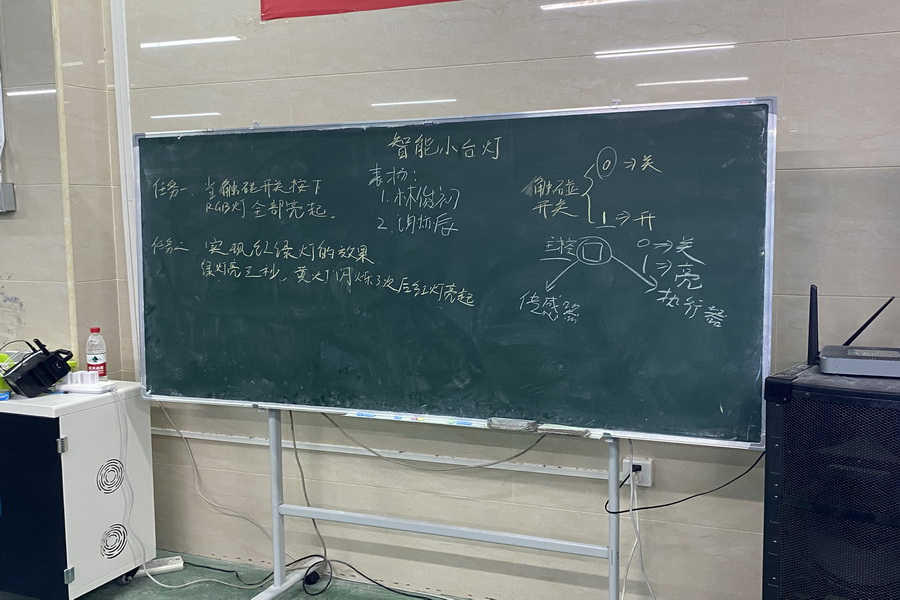 智能小台灯
任务一、当触碰开关按下
RGB灯全部亮起.
任务二 实现红绿灯的效果
绿灯亮三秒，黄灯闪烁3次后红灯亮起
表扬：
1. 林俊初
2.
触碰
开关
0 ⇒ 关
1 ⇒ 开
主控
0 ⇒ 关
1 ⇒ 亮
传感器
执行器